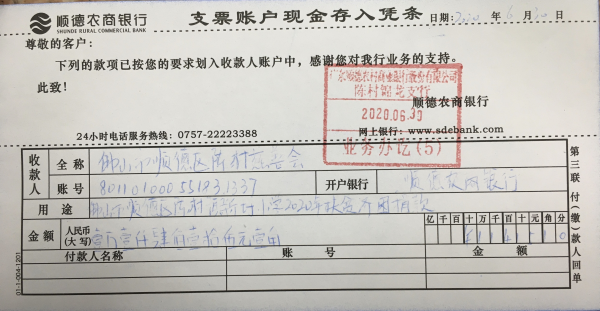 顺德农商银行 支票账户现金存入凭条 日期:2020年6月30日
SHUNDE RURAL COMMERCIAL BANK
尊敬的客户:
下列的款项已按您的要求划入收款人账户中,感谢您对我行业务的支持。
此致!
广东顺德农村商业银行股份有限公司
陈村锦龙支行
2020.06.30
业务办讫(5)
顺德农商银行
24小时电话服务热线:0757-22223388 网上银行:www.sdebank.com
收款人 全称 佛山市顺德区陈村慈善会
账号 801101000551831337 开户银行 顺德农商银行
用途 佛山市顺德区陈村 2020年
亿千百十万千百十元角分
金额 人民币(大写) 壹万壹仟肆佰壹拾伍元壹角
付款人名称 账号 金额
第三联 付(缴)款人回单
01-1-004-1201